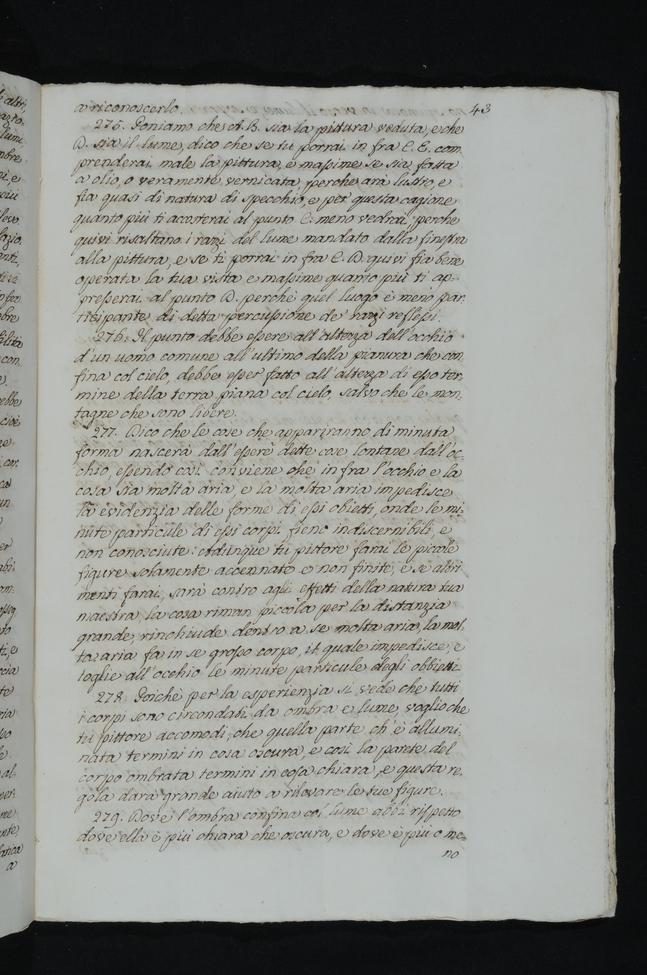 a riconoscerlo. 43
275. Poniamo che A. B. sia la pittura veduta, e che
D. sia il lume, dico che se tu porrai in fra C. E. com
prenderai male la pittura, e massime se sia fatta
a olio, o veramente vernicata, perche arà lustro, e
fia quasi di natura di specchio, e per questa cagione
quanto più ti acosterai al punto C. meno vedrai, perche
quivi risaltano i razzi del lume mandato dalla finestra
alla pittura, e se ti porrai in fra E. D. quivi fia bene
operata la tua vista e massime quanto più ti ap-
presserai al punto D. perchè quel luogo è meno par
ticipante di detta percussione de' razzi reflessi.
276. Il punto debbe essere all'altezza dell'occhio
d'un uomo comune all'ultimo della pianura che con
fina col cielo, debbe esser fatto all'altezza di esso ter
mine della terra piana col cielo, salvo che le mon-
tagne che sono libere.
277. Dico che le cose che appariranno di minuta
forma nascerà dall'essere dette cose lontane dall'oc-
chio, essendo così conviene che in fra l'occhio e la
cosa sia molta aria, e la molta aria impedisce
la evidenzia delle forme di essi obietti, onde le mi
nute particule di essi corpi fieno indiscernibili, e
non conosciute: adunque tu pittore farai le picole
figure solamente accennate e non finite, e se altri
menti farai, sarà contro agli effetti della natura tua
maestra, la cosa riman piccola per la distanzia
grande, rinchiude dentro a se molta aria, la mol
ta aria fa in se grosso corpo, il quale impedisce, e
toglie all'occhio le minute particule degli obbietti.
278. Poichè per la esperienzia si vede che tutti
i corpi sono circondati da ombra e lume, voglio che
tu pittore accomodi, che quella parte ch'è allumi-
nata termini in cosa oscura, e così la parte del
corpo ombrata termini in cosa chiara, e questa re-
gola darà grande aiuto a rilevare le tue figure.
279. Dove l'ombra confina col lume abbi rispetto
dove ella è più chiara che oscura, e dove è più o me
no